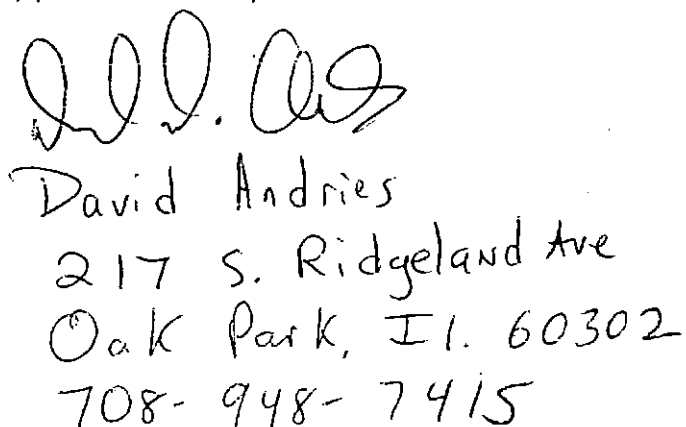 David Andries
217 S. Ridgeland Ave
Oak Park, Il. 60302
708-948-7415